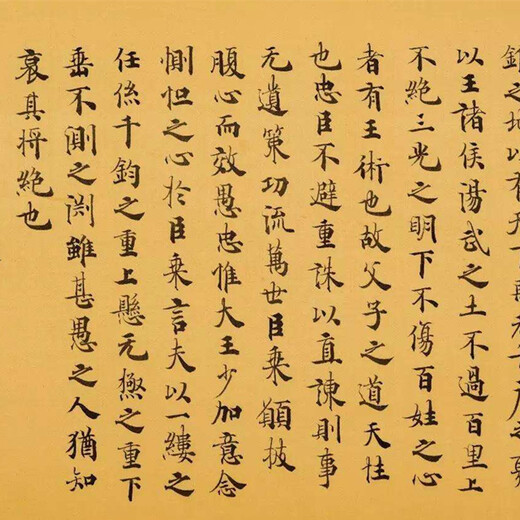 之地以有
以王諸侯湯武之土不過百里上
不絕三光之明下不傷百姓之心
者有王術也故父子之道天性
也忠臣不避重誅以直諫則事
无遺策功流萬世臣乗願披
腹心而效愚忠惟大王少加意念
惻怛之心於臣乗言夫以一縷之
任係千鈞之重上懸无極之重下
垂不測之渕雖甚愚之人猶知
哀其将絕也